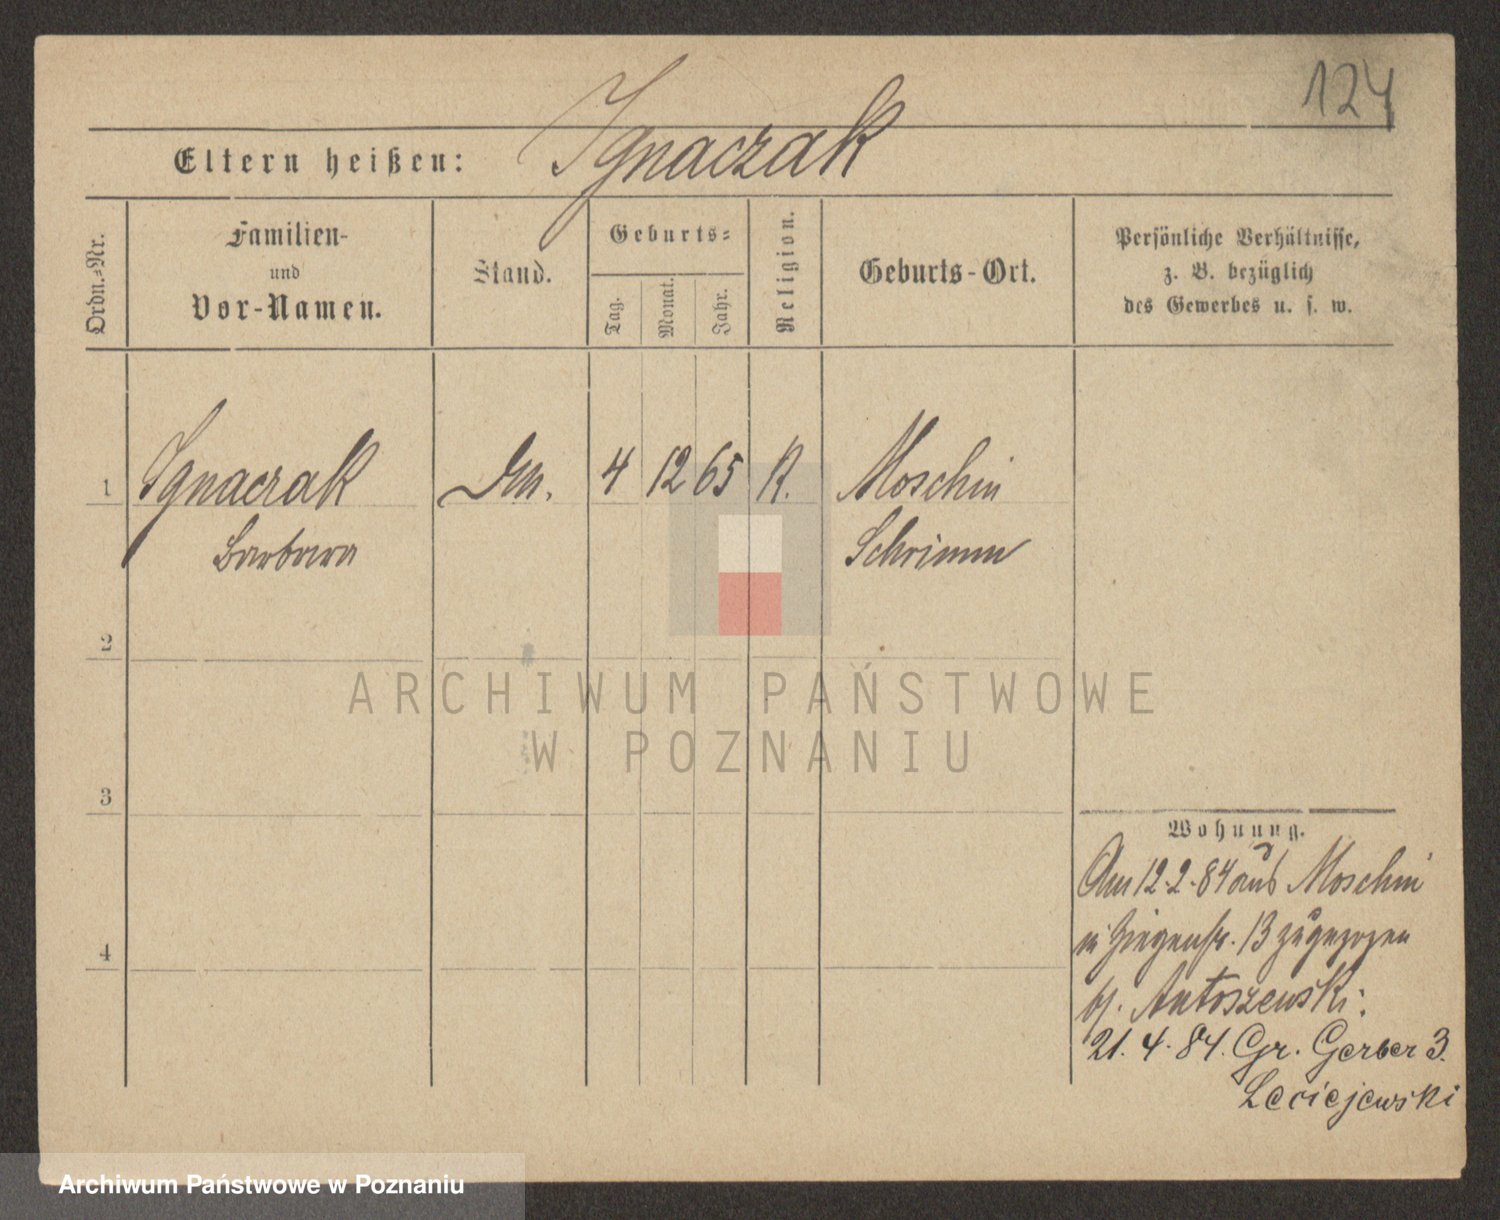 124
Eltern heißen: Ignaczak
Ordn.-Nr.
Familien-
und
Vor-Namen.
Stand.
Geburts-
Tag.
Monat.
Jahr.
Religion.
Geburts-Ort.
Persönliche Verhältnisse,
z. B. bezüglich
des Gewerbes u. s. w.
1 Ignaczak 4 12 65 K. Moschin
Barbara Schrimm
2
3
4
Wohnung.
Am 12.2.84 aus Moschin
in Ziegenstr. 13 zugezogen
bj. Antoszewski:
21.4.84. Gr. Gerber 3.
Leciejewski
ARCHIWUM PAŃSTWOWE
W POZNANIU
Archiwum Państwowe w Poznaniu